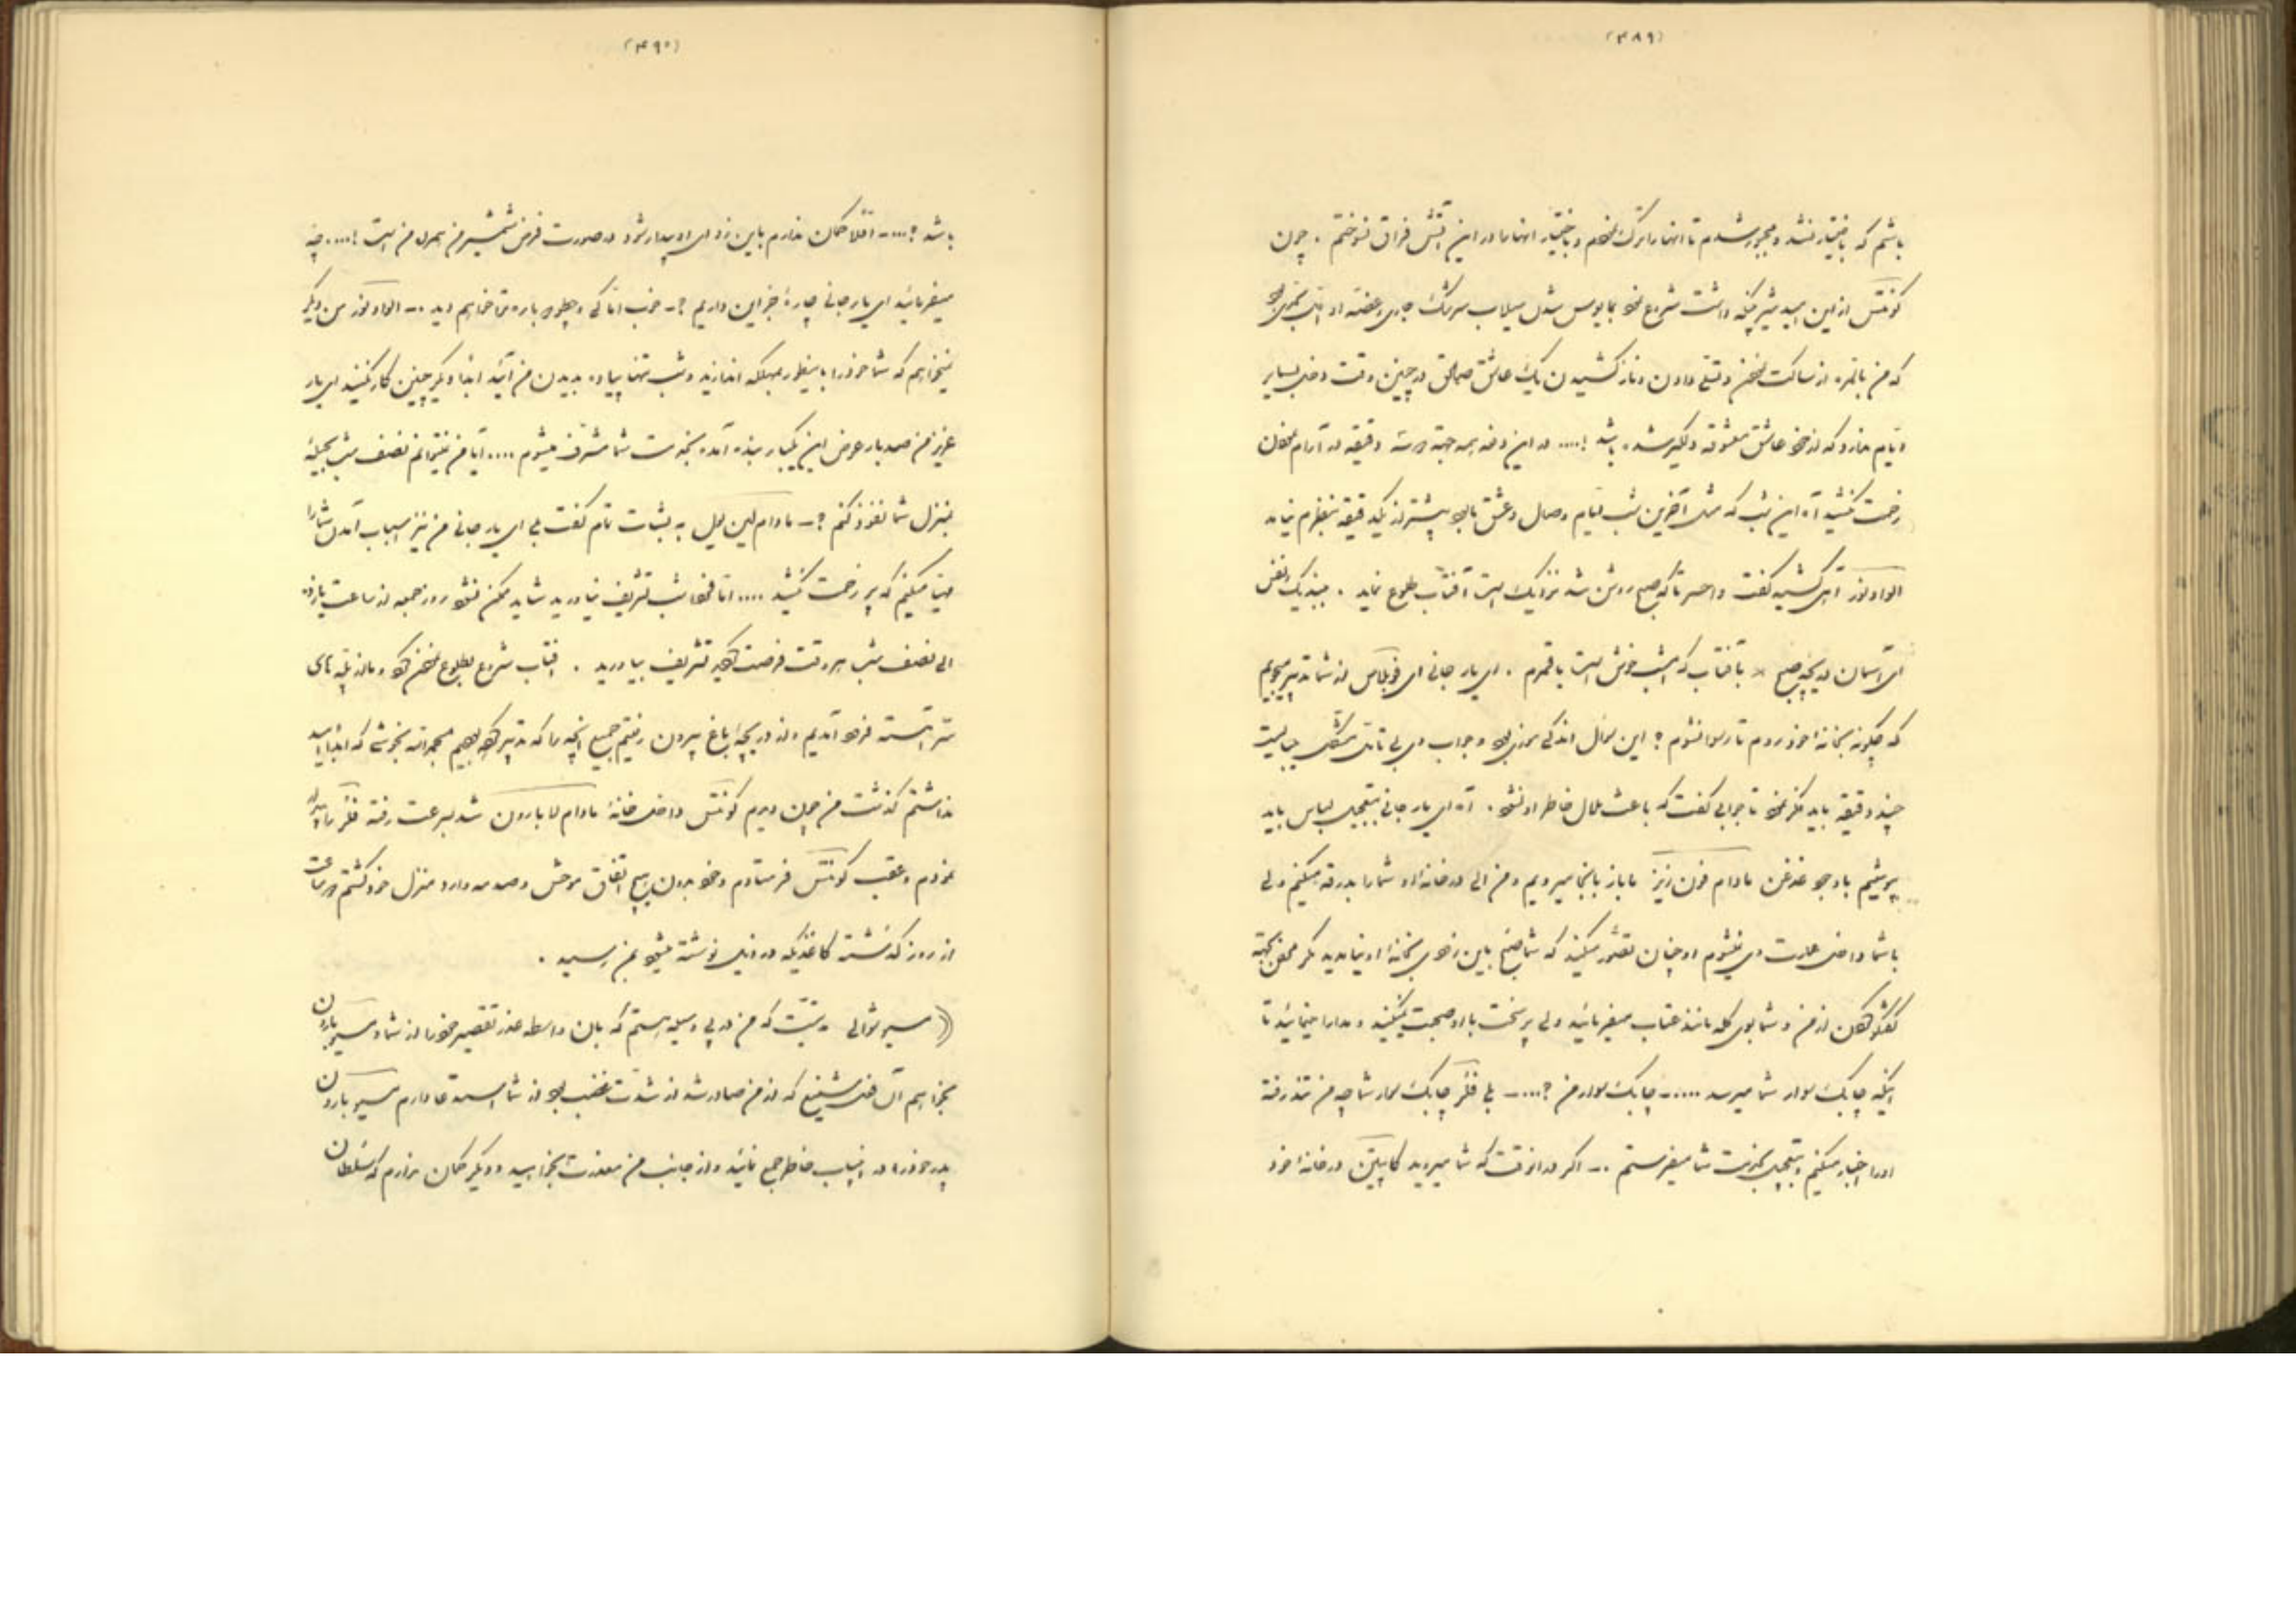 (۴۸۹)
باشم که باختیار نشد و مجبور شدم تا انها را ترک نمودم و باختیار انها را در این آتش فراق نسوختم . چون
کونتس از این امید شروع نمود بمایوس شدن سیلاب سرشک جاری
که من بالمره از ساکت نمودن و تسلی دادن و ناز کشیدن یک عاشق صادق در چنین وقت
ندارد که از خود عاشق معشوقه دلگیر شده باشد !.... در این دفعه همه جهة دقیقه در آرام نمودن
زحمت کشید آه این شب که مثل آخرین شب ایام وصال و عشق ما بود بیشتر از یکدقیقه بنظرم نیامد
الوادنور آهی کشید گفت واحسرتا که صبح روشن شد نزدیک است آفتاب طلوع نماید .
ای آسمان دریچه صبح × بآفتاب که امشب خوش است با قمرم . ای یار جانی ای فوبلاس از شما تدبیر میجویم
که چگونه بخانه خود روم تا رسوا نشوم ؟ این سؤال اندکی بود و جواب وی بی تامل مشکل میبایست
چند دقیقه باید فکر نمود تا جوابی گفت که باعث ملال خاطر او نشود . آه ای یار جانی بتعجیل لباس باید
بپوشیم با وجود غدغن مادام فون رُز ما باز بانجا میرویم و من الی در خانه او شما را بدرقه میکنم ولی
با شما داخل عمارت وی نمیشوم او چنان تصور میکند که شما صبح باین زودی بخانه او نیامدید مگر محض بجهة
گفتگو کردن از من و شما بوی گله مانند عتاب میفرمائید ولی پر سخت با او صحبت نمیکنید و مدارا مینمائید تا
اینکه چابک سوار شما میرسد ..... ــ چابک سوار من ؟.... ــ بلی فلر چابک سوار شما چه من تند رفته
او را اخبار میکنم و بتعجیل بخدمت شما میفرستم .ــ اگر در انوقت که شما میروید کاپیتن در خانه خود
(۴۹۰)
باشد ؟.... ــ اقلا گمان ندارم باین زودی او بیدار شود در صورت فرض شمشیر من همراه من است !.... چه
میفرمائید ای یار جانی چارهٔ جز این داریم ؟ ــ خوب اما کی و چطور باره شما خواهیم دید .ــ الوادنور من دیگر
نمیخواهم که شما خود را باینطور بمهلکه اندازید و شب تنها پیاده بدیدن من آئید ابدا دیگر چنین کار نکنید ای یار
عزیز من صد بار عوض این یکبار بنده آمده بخدمت شما مشرف میشوم .... آیا من نمیتوانم نصف شب بحیله
بمنزل شما نفوذ کنم ؟ ــ مادام لین یول به بشاشت تمام گفت بلی ای یار جانی من نیز اسباب آمدن شما را
مهیا میکنم که پر زحمت نکشید .... اما فردا شب تشریف نیاورید شاید ممکن نشود روز جمعه از ساعت یازده
الی نصف شب هر وقت فرصت کردید تشریف بیاورید . افتاب شروع بطلوع نمودن کرد و ما از پله های
سر آهسته فرود آمدیم و از دریچهٔ باغ بیرون رفتیم جمیع انچه را که تدبیر کرده بودیم بحمدالله بخوشی که ابدا امید
نداشتم گذشت من چون دیدم کونتس داخل خانهٔ مادام لابارون شد بسرعت رفته فلر را بیدار
نمودم و عقب کونتس فرستادم و خود بدون هیچ اتفاق موحش و صدمه وارد منزل خود گشتم دو ساعت
از روز گذشته کاغذیکه در ذیل نوشته میشود بمن رسید .
(( مسیو شوالی مدتیست که من در پی وسیله هستم که بان واسطه عذر تقصیر خود را از شما و مسیو بارون
بخواهم آن فعل شنیع که از من صادر شد از شدت غضب بود از شما استدعا دارم مسیو بارون
پدر خود را در اینباب خاطر جمع نمائید و از جانب من معذرت بخواهید و دیگر گمان ندارم که سلطان